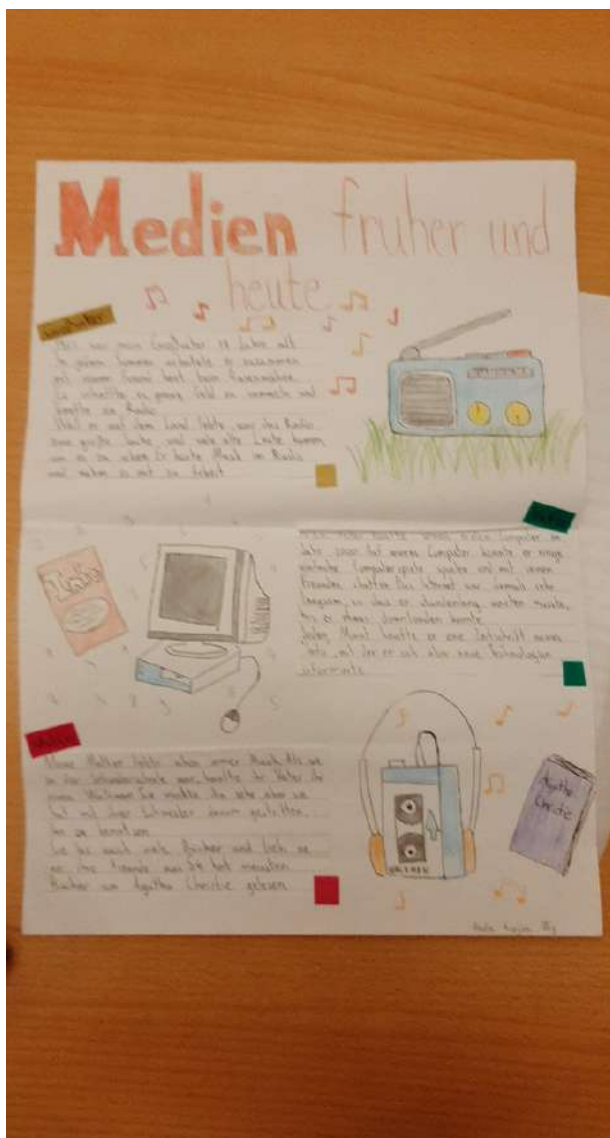 Medien früher und
heute
Großvater
war mein Großvater Jahre alt
In jenem Sommer arbeitete er zusammen
mit einem Freund beim
Er schaffte es genug Geld zu sammeln und
kaufte ein Radio
Weil er auf dem Land lebte, war das Radio
eine große Sache, und viele alte Leute kamen
um es zu sehen Er hörte Musik im Radio
und nahm es mit zur Arbeit
kaufte seinen ersten Computer im
Jahr Auf seinem Computer konnte er einige
einfache Computerspiele spielen und mit seinen
Freunden chatten Das Internet war damals sehr
langsam, so dass er stundenlang warten musste,
bis er etwas downloaden konnte.
Jeden Monat kaufte er eine Zeitschrift namens
mit der er sich über neue Technologien
informierte
Meine Mutter liebte schon immer Musik. Als sie
in der Sekundarschule war, kaufte ihr Vater ihr
einen Walkman Sie mochte ihn sehr aber sie
hat mit ihrer Schwester darum gestritten,
ihn zu benutzen
Sie las auch viele Bücher und lieh sie
an ihre Freunde aus Sie hat meistens
Bücher von Agatha Christie gelesen
Agatha
Christie